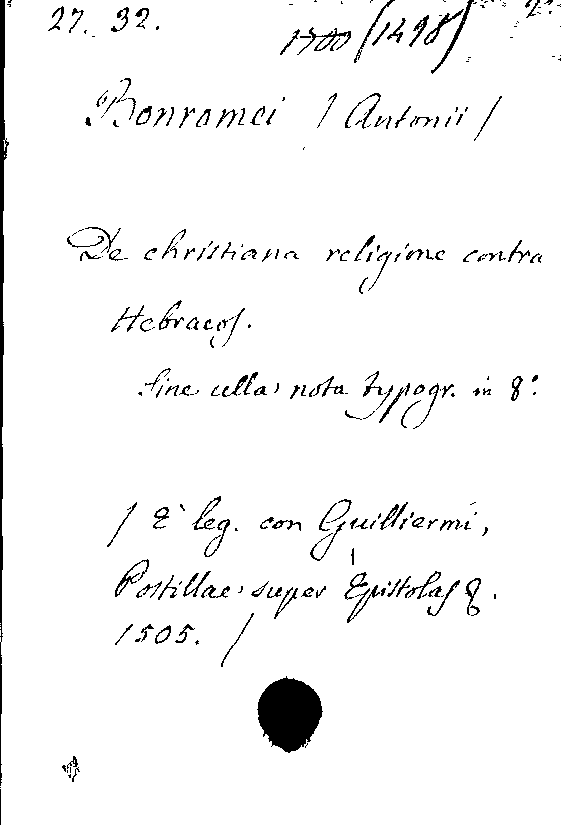 27. 32.
1700 (1498)
Bonromei / Antonii /
De christiana religione contra
Hebraeos.
sine ulla nota typogr. in 8º.
/ È leg. con Guilliermi,
Postillae super Epistolas &.
1505. /